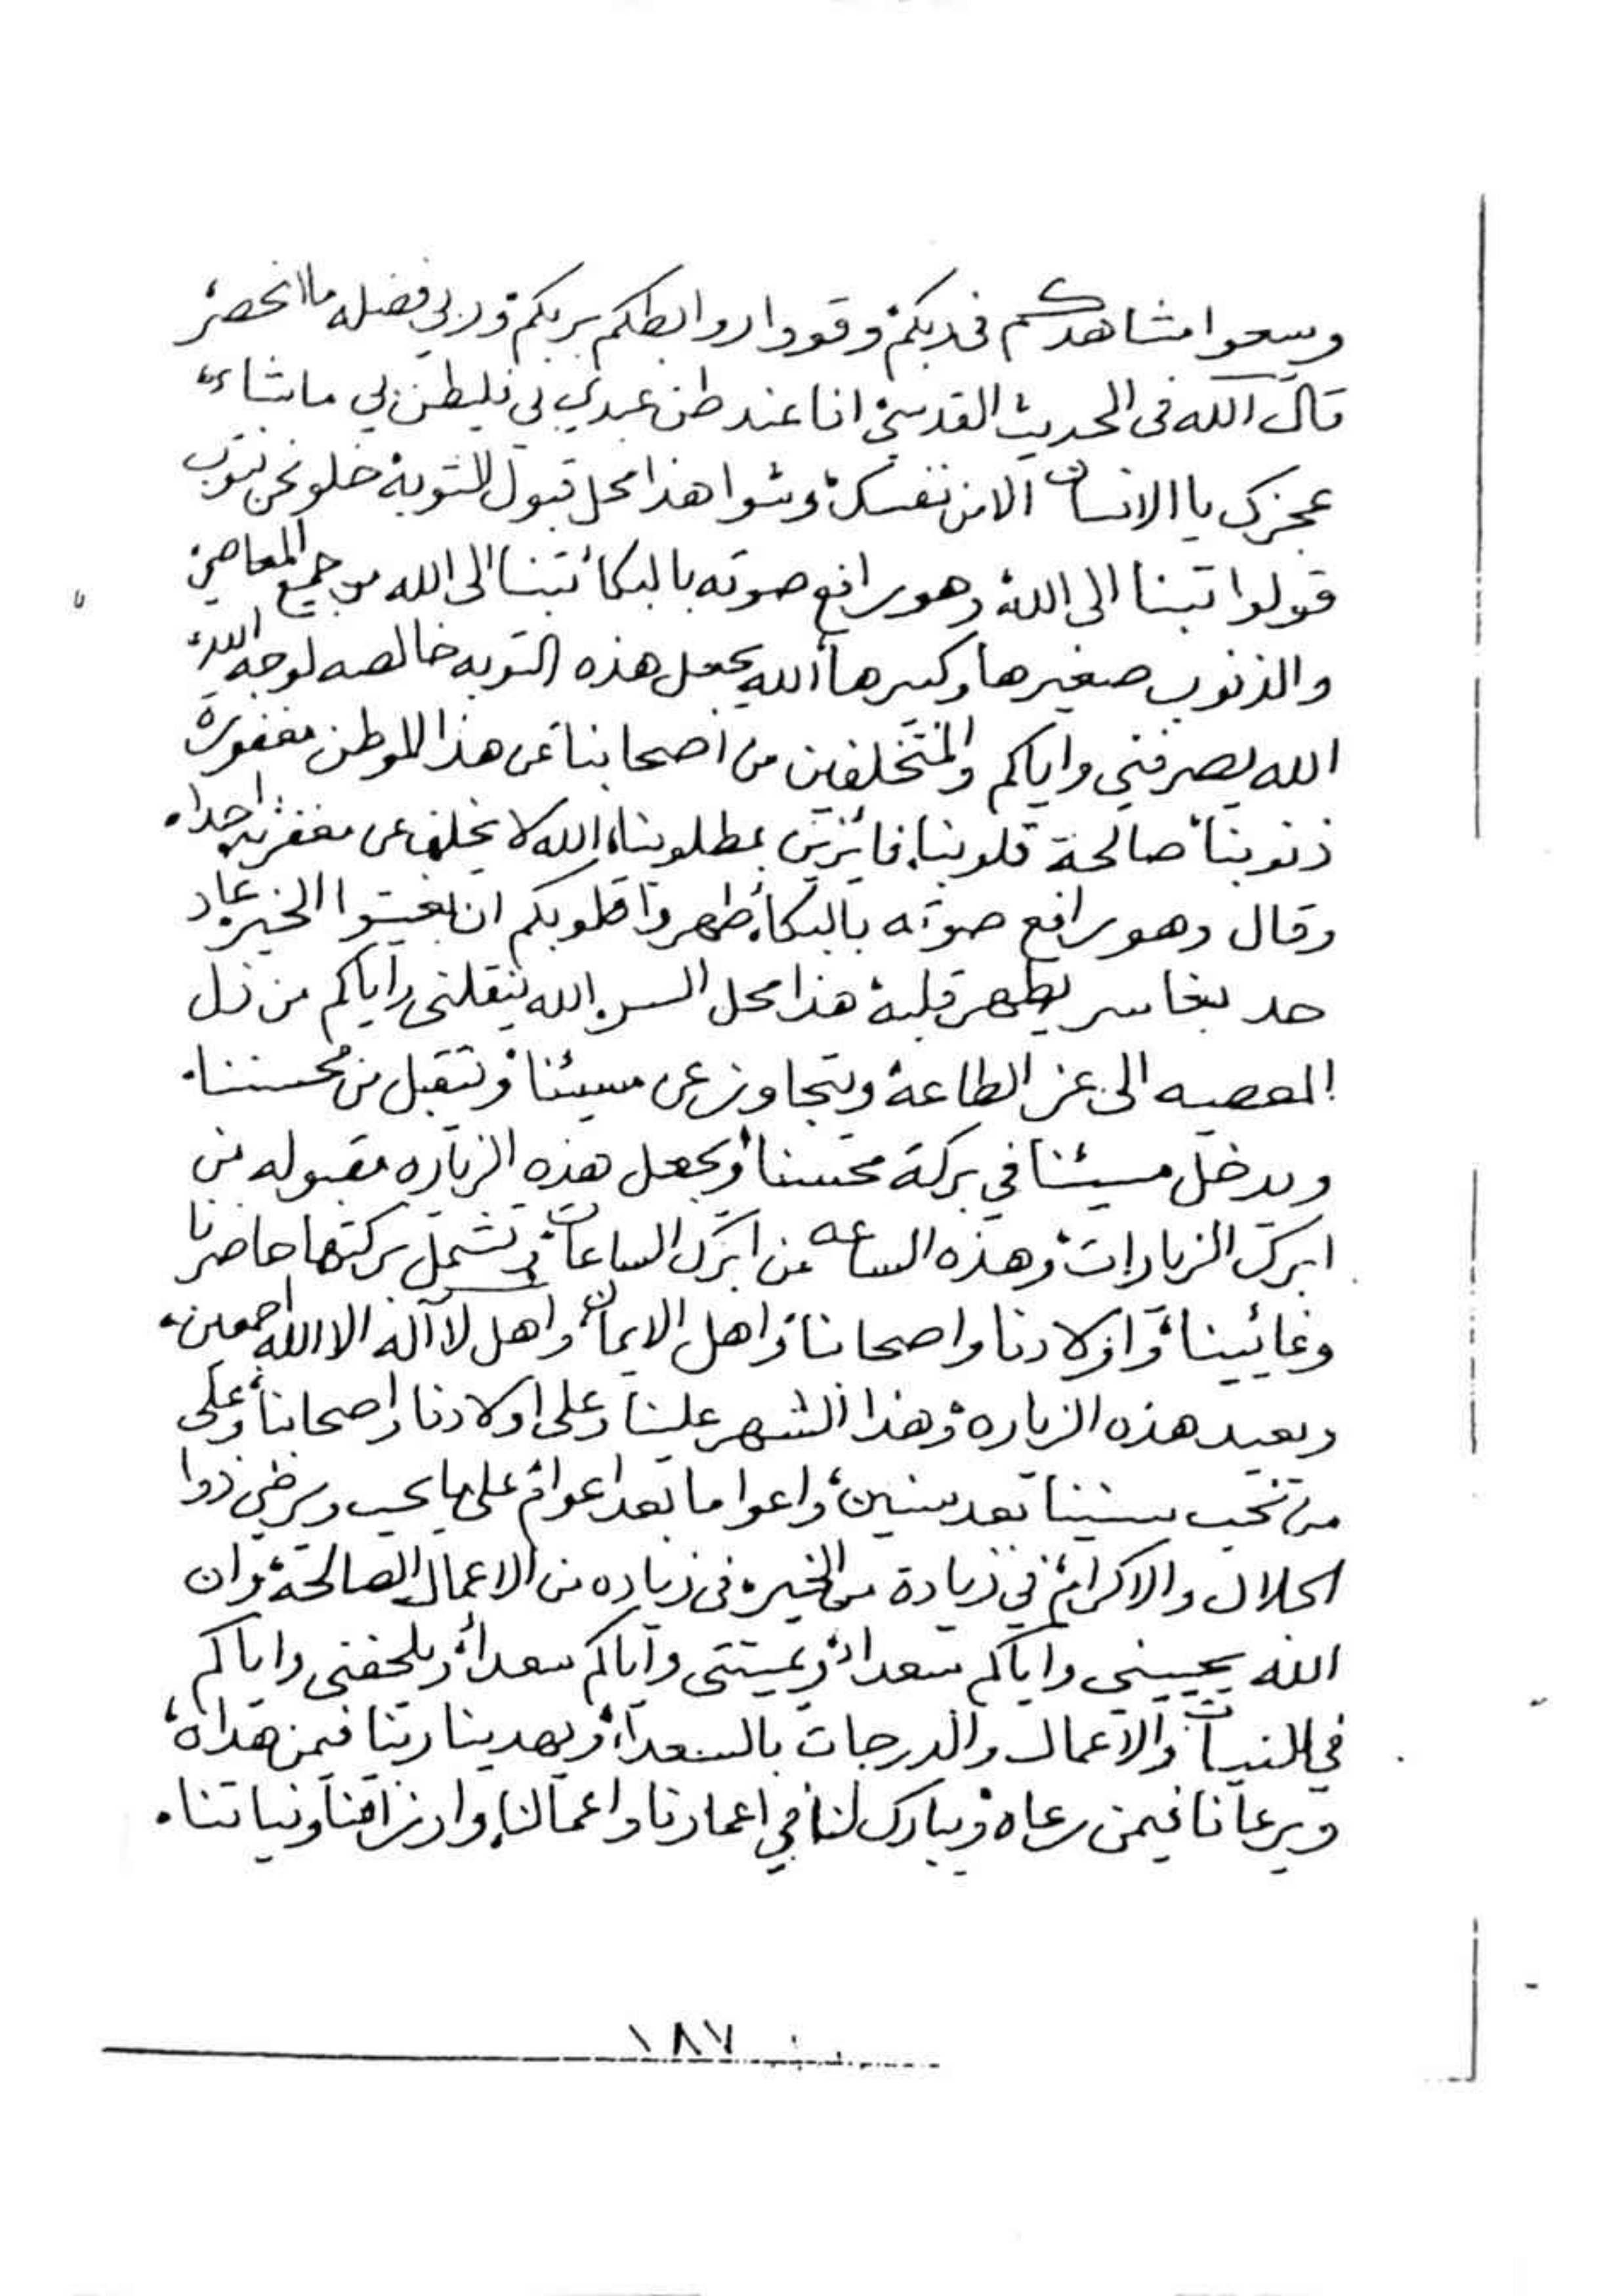 وسعوا مشاهدكم في ربكم، وقووا روابطكم بربكم، وربي فضله ما انحصر،
قال الله في الحديث القدسي، انا عند ظن عبدي بي فليظن بي ما شاء،
عجزك يا الانسان الا من نفسك، وشوا هذا محل قبول للتوبة خلو نحن نتوب
قولوا تبنا الى الله، وهو رافع صوته بالبكاء، تبنا الى الله من جميع المعاصي،
والذنوب صغيرها وكبيرها، الله يجعل هذه التوبه خالصه لوجه الله،
الله يصرفني واياكم والمتخلفين من اصحابنا عن هذا الموطن مغفورة
ذنوبنا، صالحة قلوبنا، فائزين بمطلوبنا، الله لا يخلف عن مغفرته احدا.
وقال وهو رافع صوته بالبكاء، طهروا قلوبكم ان بغيتوا الخير، عاد
حد بغا سر يطهر قلبه، هذا محل السر، الله ينقلني واياكم من ذل
المعصيه الى عز الطاعة، ويتجاوز عن مسيئنا، ويتقبل من محسننا.
ويدخل مسيئنا في بركة محسننا، ويجعل هذه الزياره مقبوله من
ابرك الزيارات، وهذه الساعه من ابرك الساعات، وتشمل بركتها حاضرنا
وغائبينا، واولادنا واصحابنا، واهل الايمان، واهل لا آله الا الله اجمعين،
ويعيد هذه الزياره، وهذا الشهر علينا وعلى اولادنا واصحابنا، وعلى
من نحب سنينا بعد سنين، واعواما بعد اعوام، على ما يحب ويرضى ذوا
الجلال والاكرام، في زيادة من الخير، في زياده من الاعمال الصالحة، وان
الله يحييني واياكم سعداء، ويميتني واياكم سعداء، ويلحقني واياكم
في النيات والاعمال والدرجات بالسعداء، ويهدينا ربنا فيمن هداه،
ويرعانا فيمن رعاه، ويبارك لنا في اعمارنا واعمالنا، وارزاقنا ونياتنا.
١٨٧